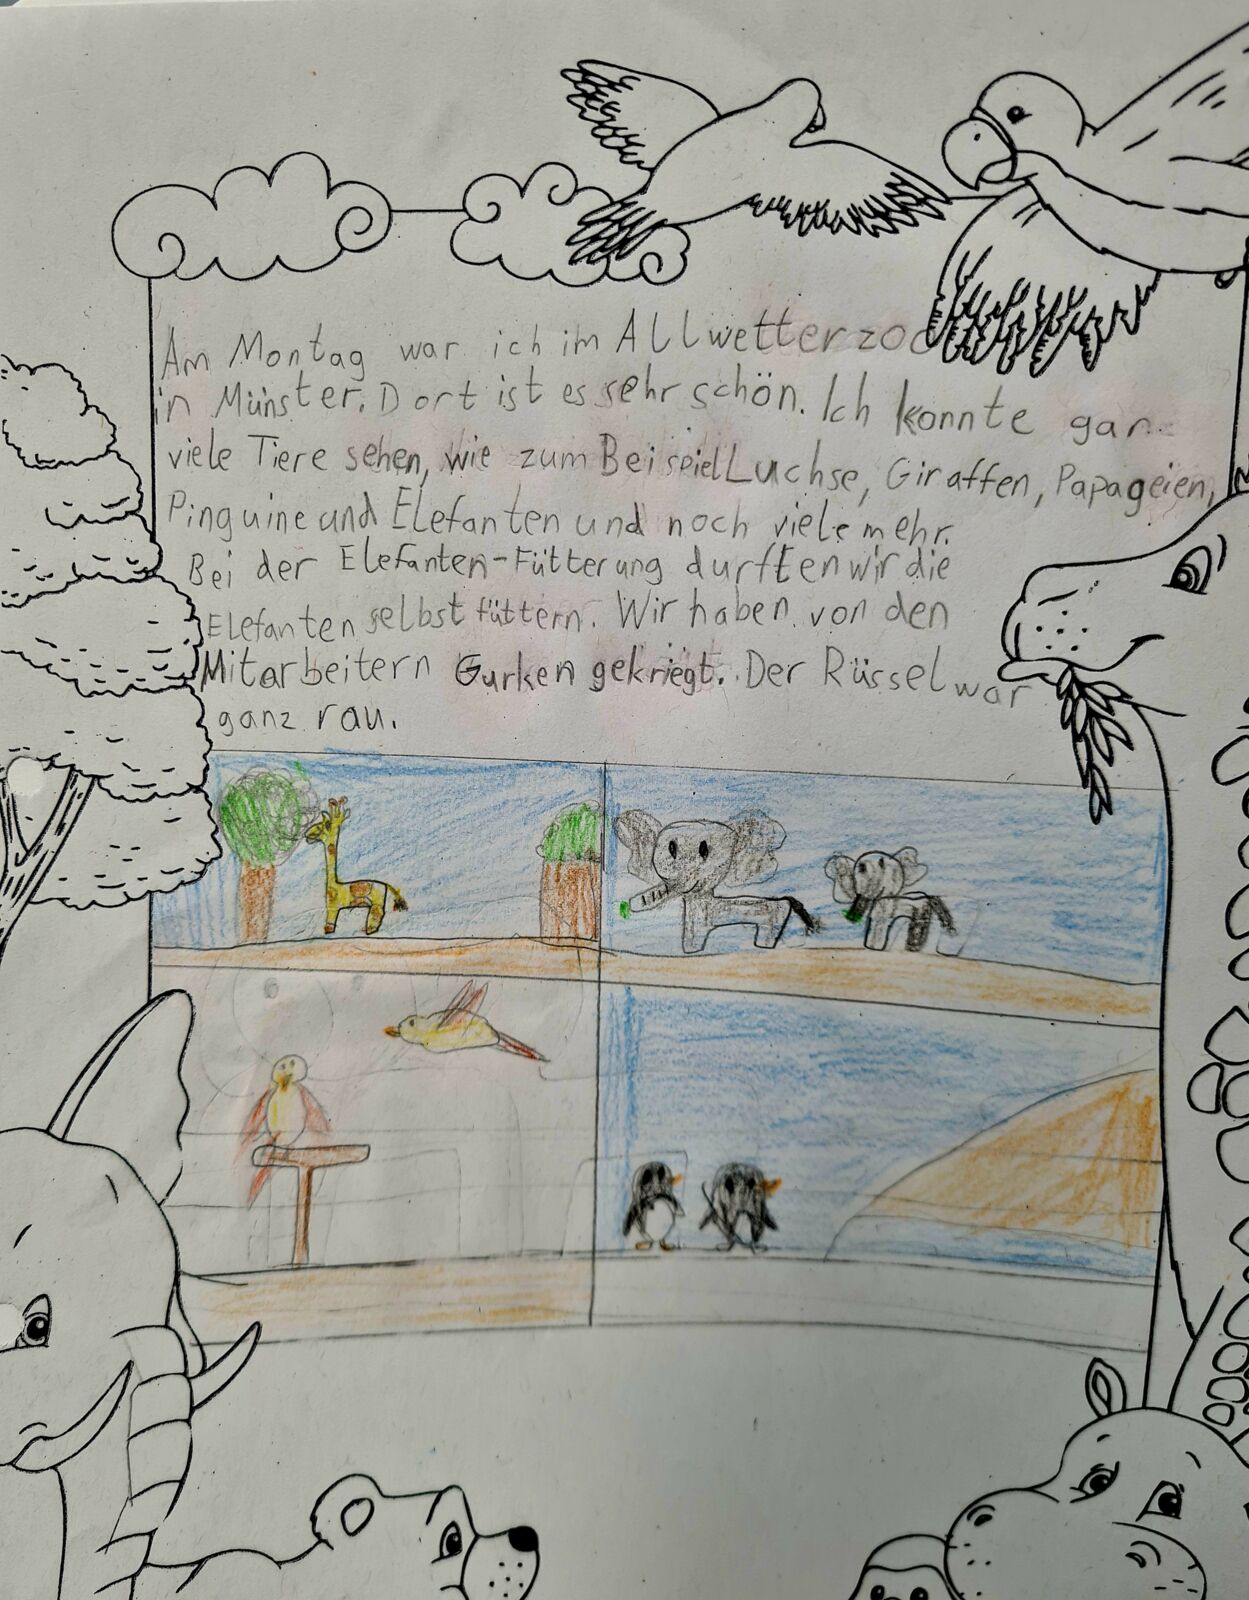 Am Montag war ich im Allwetterzoo
in Münster. Dort ist es sehr schön. Ich konnte ganz
viele Tiere sehen, wie zum Beispiel Luchse, Giraffen, Papageien,
Pinguine und Elefanten und noch viele mehr.
Bei der Elefanten-Fütterung durften wir die
Elefanten selbst füttern. Wir haben von den
Mitarbeitern Gurken gekriegt. Der Rüssel war
ganz rau.